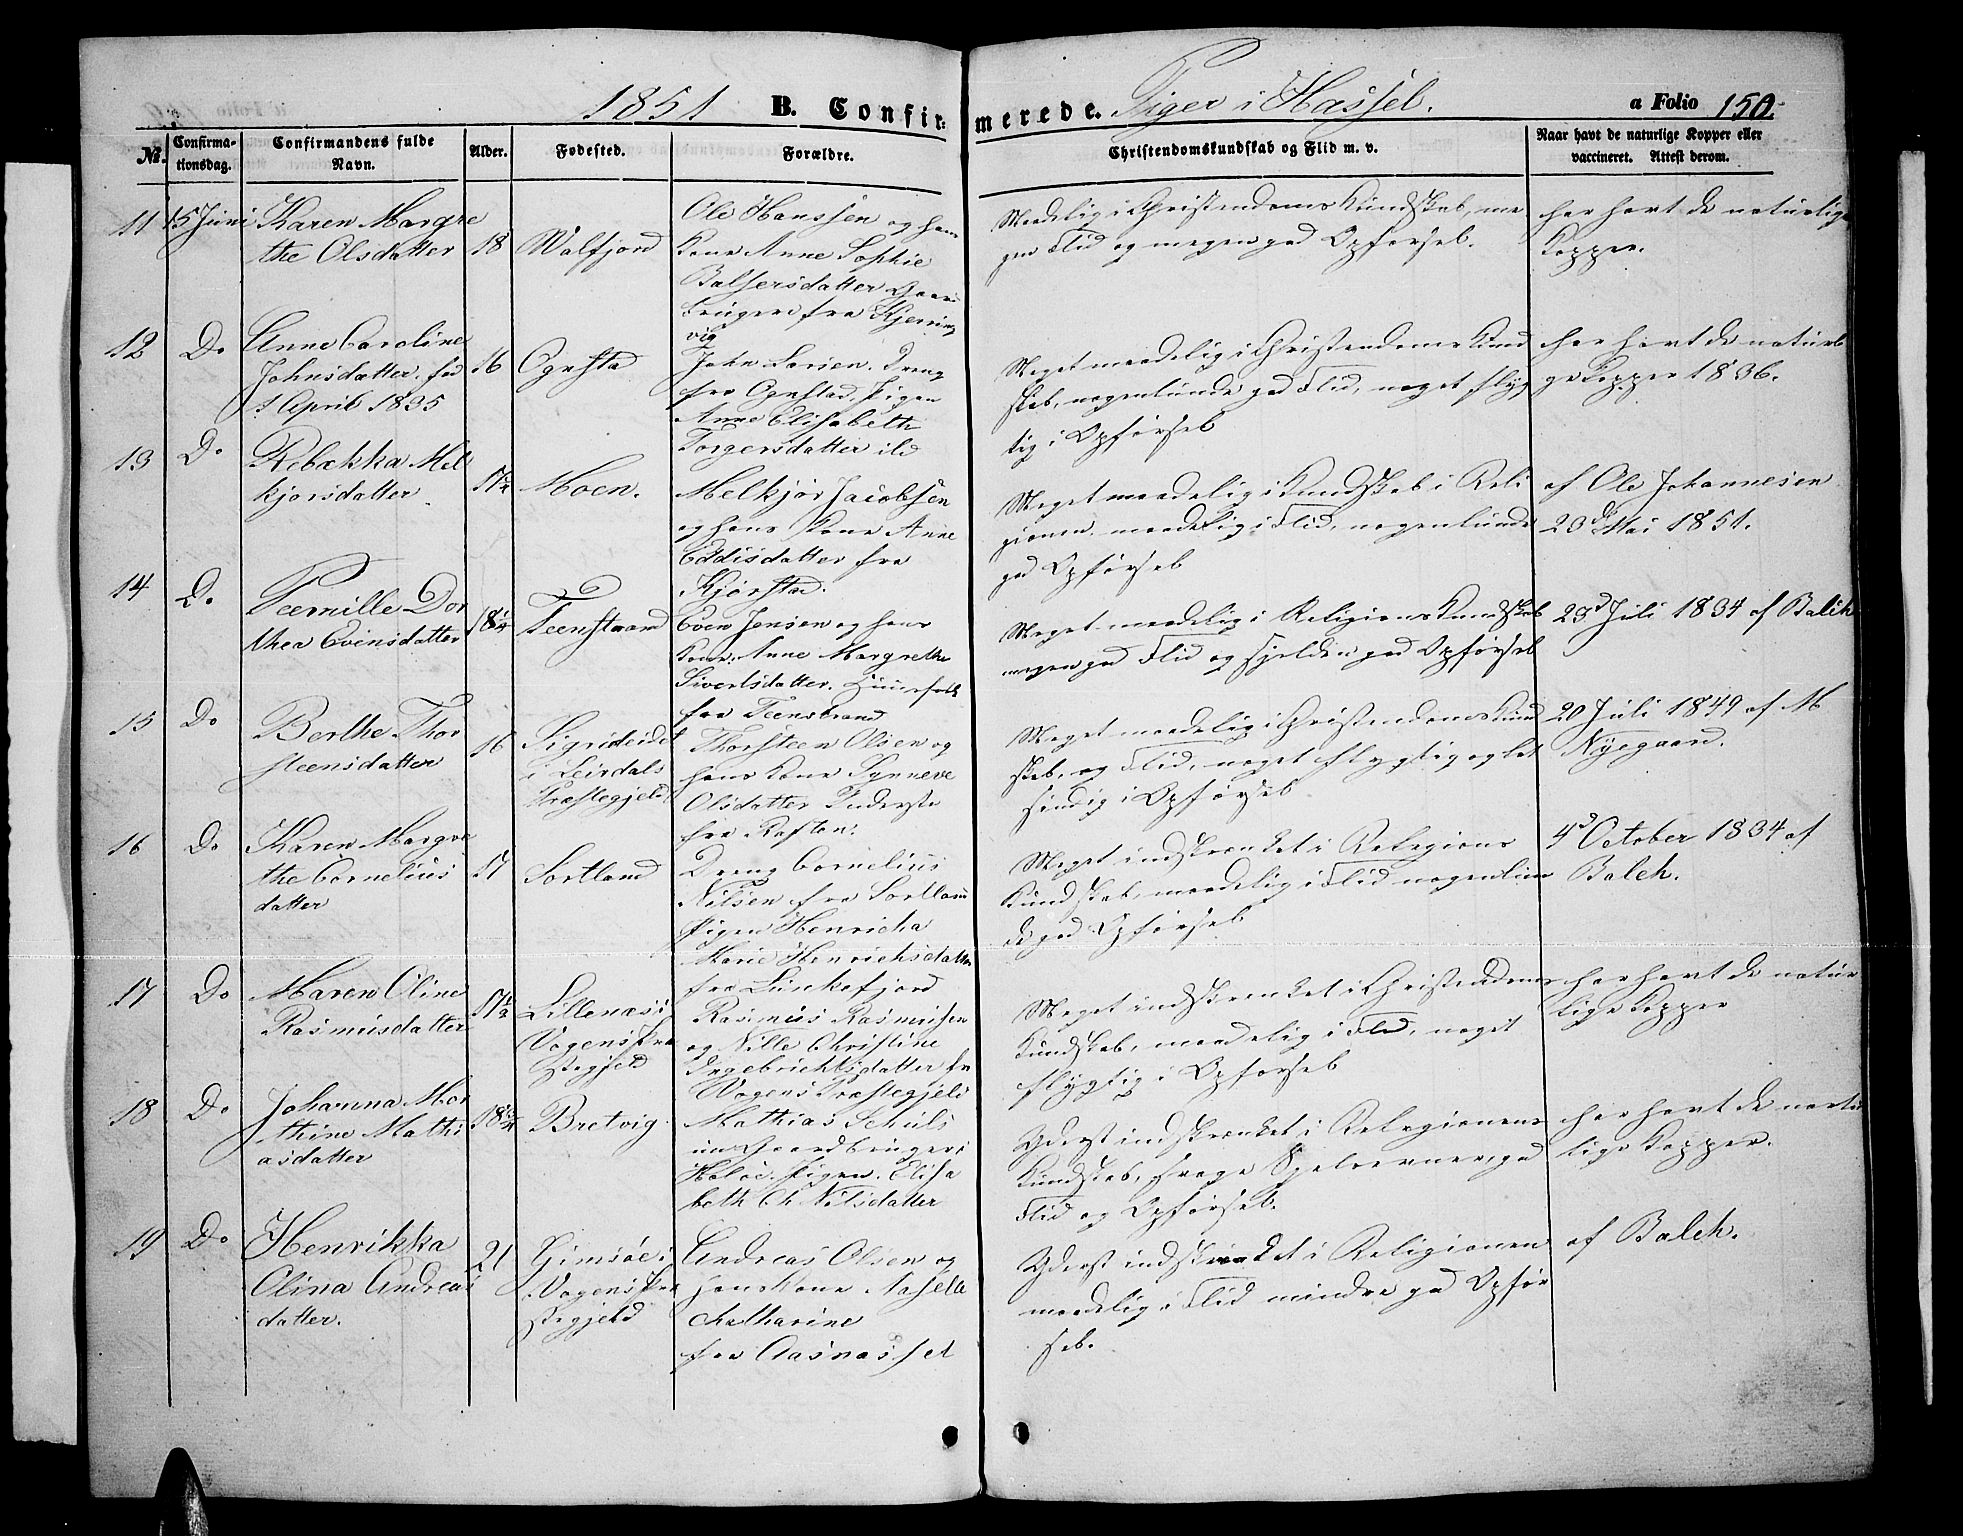 1851 B. Confirmerede. Piger i Hassel. a Folio 150.
No. Confirmationsdag. Confirmandens fulde Navn. Alder. Fødested. Forældre. Christendomskundskab og Flid m. v. Naar havt de naturlige Kopper eller vaccineret. Attest derom.
11 15 Juni Karen Margre
the Olsdatter
18 Walfjord
Ole Hanssen og hans
Kone Anne Sophie
Balsersdatter Gaard
brugere fra Kjerring
vig
Maadelig i Christendoms Kundskab, me
gen Flid og megen god Opførsel.
har havt de naturlige
Kopper.
12 Do Anne Caroline
Johnsdatter. fød
April 1835
16 Ognsta
John Larsen. Dreng
fra Ognstad. Pigen
Anne Elisabeth
Torgersdatter ild
Meget maadelig i Christendoms Kund
skab, nogenlunde god Flid, noget flyg
tig i Opførsel
har havt de naturli
ge Kopper 1836.
13 Do Rebækka Mel
kjorsdatter
17½ Moen.
Melkjør Jacobsen
og hans Kone Anne
Eddisdatter fra
Kjørstad.
Meget maadelig i Kundskab i Reli
gionen, maadelig i Flid, nogenlunde
god Opførsel
af Ole Johannesen
23d Mai 1851.
14 Do Pernille Dor
thea Evensdatter
18¼ Teenstrand
Even Jensen og hans
Kone Anne Margrethe
Sivertsdatter. Huusfolk
fra Teenstrand
Meget maadelig i Religions Kundskab
megen god Flid og sjelden god Opførsel
23d Juli 1834 af Balch
15 Do Berthe Thor
steensdatter
16 Sigrideidet
i Leirdals
Præstegjeld
Thorsteen Olsen og
hans Kone Synneve
Olsdatter Inderste
fra Raften.
Meget maadelig i Christendoms Kund
skab, og Flid, noget flygtig og let
sindig i Opførsel
20 Juli 1849 af M
Nyegaard.
16 Do Karen Margre
the Cornelius
datter
17 Sortland
Dreng Cornelius
Nilsen fra Sortland
Pigen Henricha
Marie Henrichsdatter
fra Lunkefjord
Meget indskrænket i Religions
Kundskab, maadelig i Flid nogenlun
de god Opførsel
4d October 1834 af
Balch.
17 Do Maren Oline
Rasmusdatter
17½ Lillenæs i
Vogens Præ
stegjeld
Rasmus Rasmusen
og Nille Christine
Ingebrichtsdatter fra
Vogens Præstegjeld
Meget indskrænket i Christendoms
Kundskab, maadelig i Flid, noget
flygtig i Opførsel
har havt de natur
lige Kopper
18 Do Johanna Mar
thine Mathi
asdatter
18¾ Bretvig
Mathias Schuls
un Gaardbruger i
Haløe. Pigen. Elisa
beth Ch Nilsdatter
Yderst indskrænket i Religionens
Kundskab, svage Sjelsevner, god
Flid og Opførsel.
har havt de natur
lige Kopper.
19 Do Henrikka
Olina Andreas
datter.
21 Gimsøe i
Vogens Præ
stegjeld
Andreas Olsen og
hans Kone
Chatharine
fra Aasnasset
Yderst indskrænket i Religionen
maadelig i Flid mindre god Opfør
sel.
af Balch.